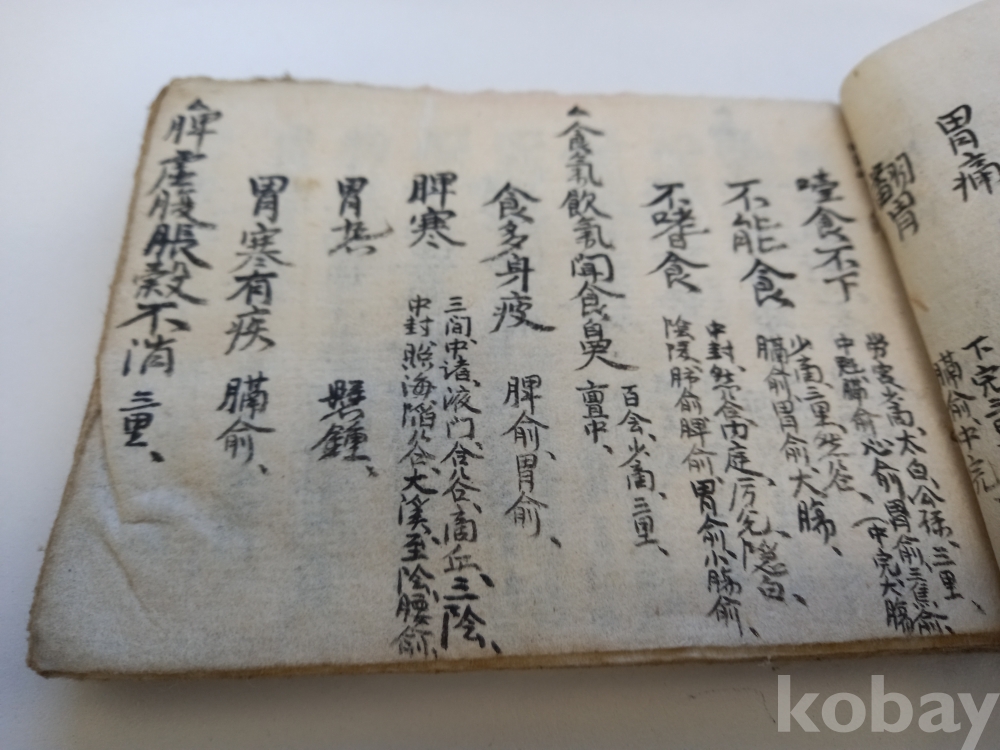 胃痛
翻胃
噎食不下
勞宮、少商、太白、公孫、三里、
中魁、膈俞、心俞、胃俞、三焦俞、
(中完、大腸
不能食
少商、三里、然谷、
膈俞、胃俞、大腸、
不嗜食
中封、然谷、內庭、厉兌、隱白、
陰陵、肺俞、脾俞、胃俞、小腸俞、
食氣飲氣聞食臭
百会、少商、三里、
亶中、
食多身疲
脾俞、胃俞、
脾寒
三间、中诸、液门、合谷、商丘、三陰、
中封、照海、陷谷、大溪、至陰、腰俞、
胃热
懸鍾、
胃寒有疾
膈俞、
脾虚腹脹穀不消
三里、
kobay